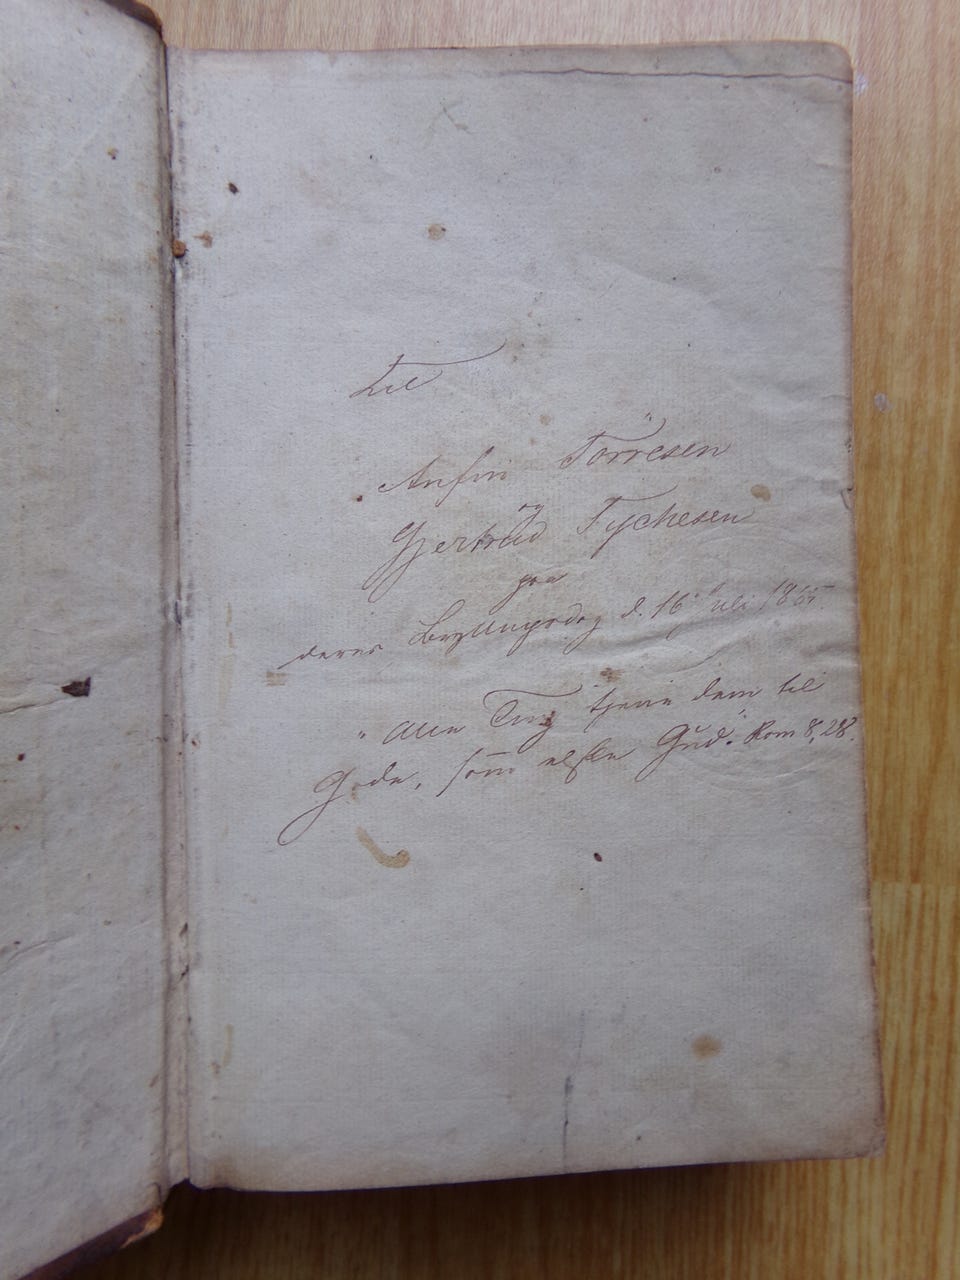 Til
Anfin Törresen
og
Gjertrud Tychesen
paa
deres Bryllupsdag d. 16 Juli 1855.
"Alle Ting tjene dem til
Gode, som elske Gud." Rom 8,28.